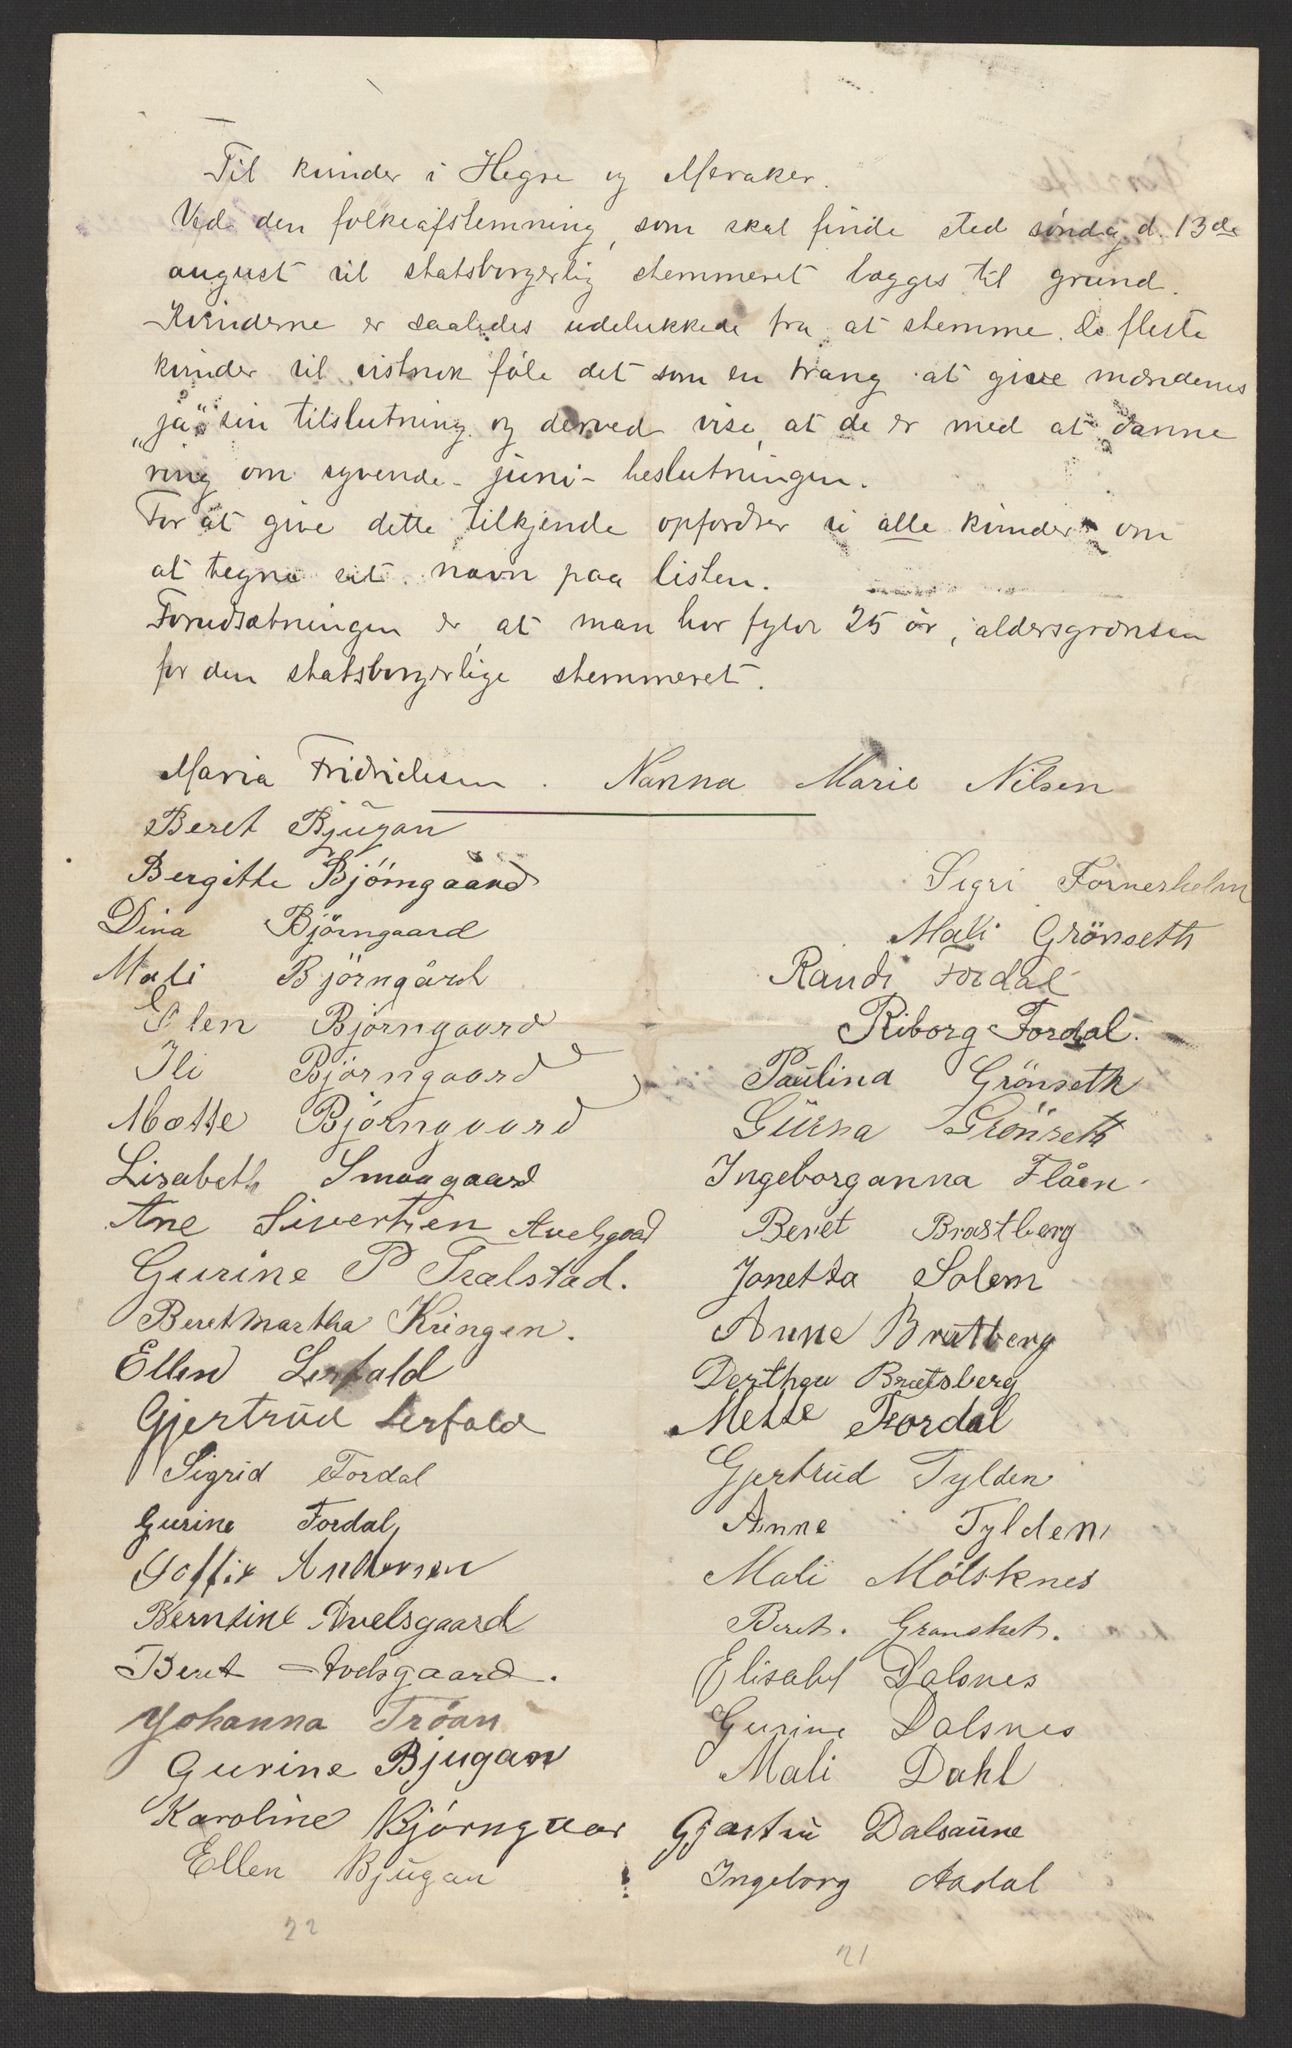 Til kvinder i Hegre og Meraker.
Ved den folkeafstemning, som skal finde sted søndag d. 13de
august vil statsborgerlig stemmeret lægges til grund.
Kvinderne er saaledes udelukkede fra at stemme. De fleste
kvinder vil vistnok føle det som en trang at give mændenes
„ja“ sin tilslutning og derved vise, at de er med at danne
ring om syvende-juni-beslutningen.
For at give dette tilkjende opfordrer vi alle kvinder om
at tegne sit navn paa listen.
Forudsætningen er, at man har fyldt 25 år, aldersgrænsen
for den statsborgerlige stemmeret.
Maria Fridrichsen. Nanna Marie Nilsen
Beret Bjugan
Bergitte Bjömgaard
Dina Björngaard
Mali Björngård
Elen Björngaard
Ili Björngaard
Mætte Björngaard
Lisabeth Smaagaard
Ane Sivertsen Avelsgaard
Gurine P Trælstad.
Beret Martha Kringen.
Ellen Lerfald
Gjertrud Lerfald
Sigrid Fordal
Gurine Fordal
Goffie Andersen
Berntine Avelsgaard
Beret Avelsgaard.
Johanna Tröan
Gurine Bjugan
Karoline Björngaar
Ellen Bjugan
22
Sigri Fornesholm
Mali Grönseth
Randi Fordal
Riborg Fordal.
Paulina Grönseth
Gurna Grönseth
Ingeborganna Flåen
Beret Bratberg
Jonetta Solem
Anne Bratberg
Derthea Bratsberg
Mette Fordal
Gjertrud Tylden
Anne Tylden
Mali Mölsknes
Beret. Gransket.
Elisabet Dalsnes
Gurine Dalsnes
Mali Dahl
Gjartru Dalsaune
Ingeborg Aadal
21